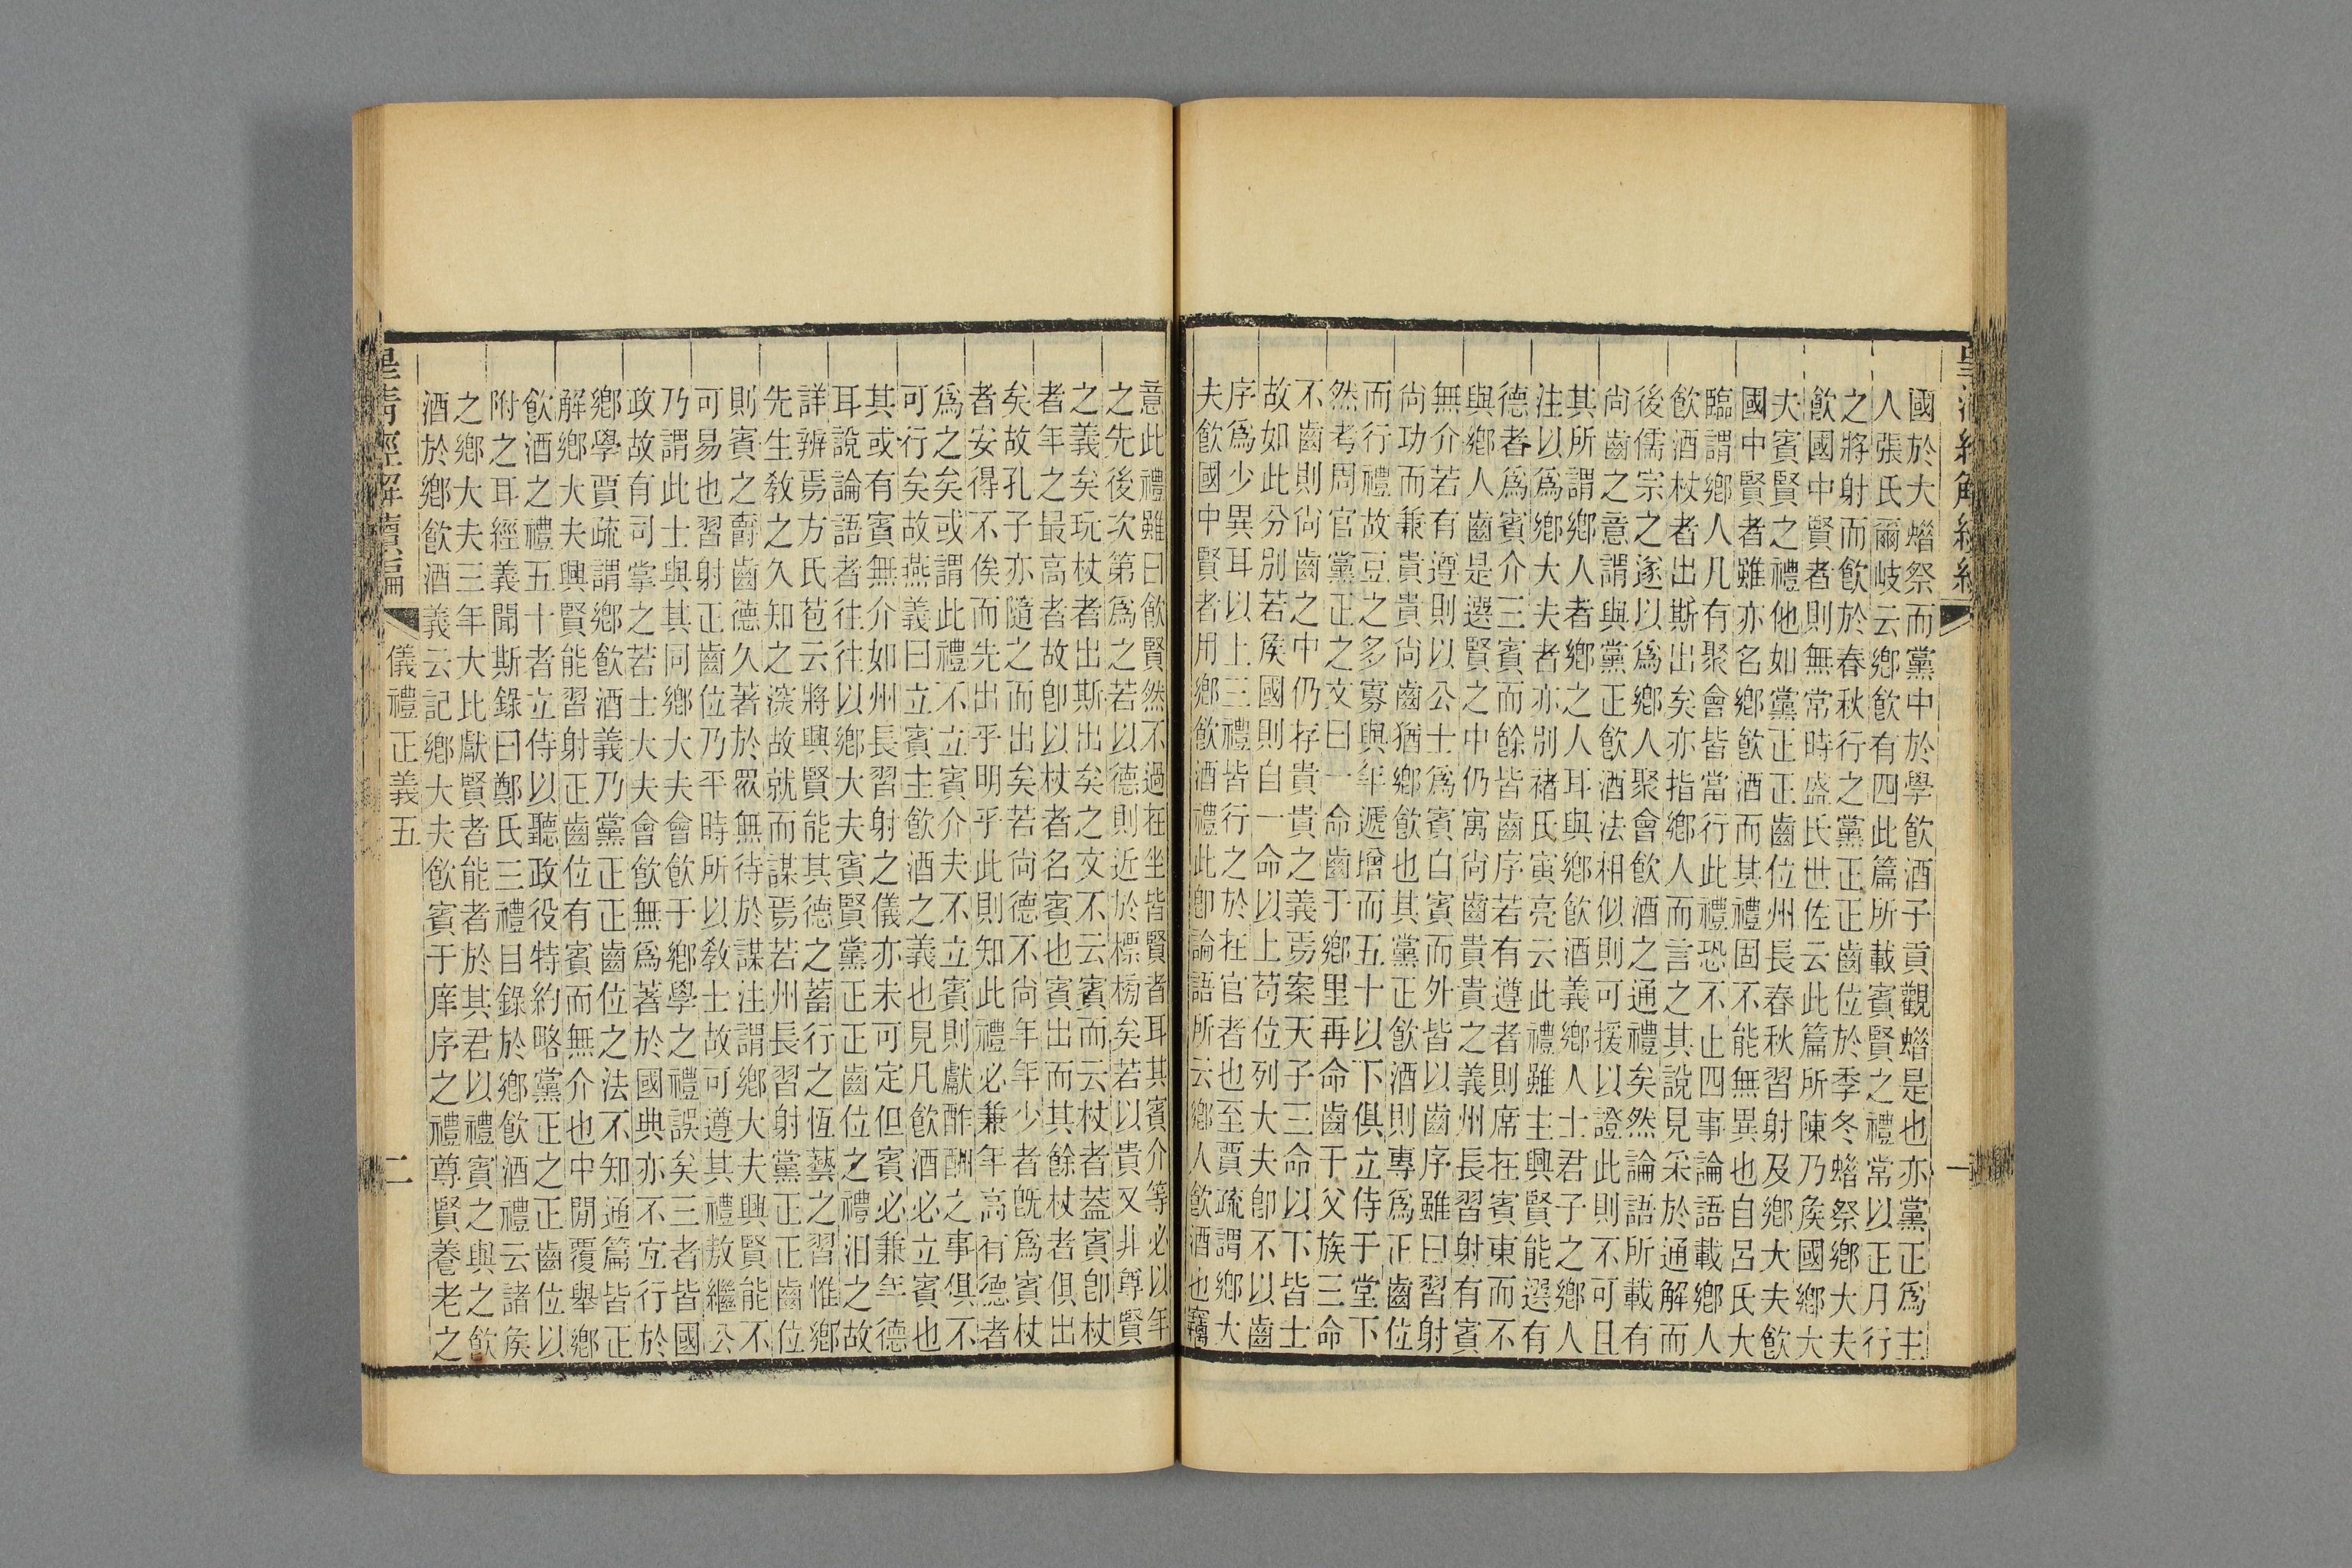 皇清經解續編
一
國於大蜡祭而黨中於學飲酒子貢觀蜡是也亦黨正爲主
人張氏爾岐云鄉飲有四此篇所載賓賢之禮常以正月行
之將射而飲於春秋行之黨正正齒位於季冬蜡祭鄉大夫
飲國中賢者則無常時盛氏世佐云此篇所陳乃矦國鄉大
夫賓賢之禮他如黨正正齒位州長春秋習射及鄉大夫飲
國中賢者雖亦名鄉飲酒而其禮固不能無異也自呂氏大
臨謂鄉人凡有聚會皆當行此禮恐不止四事論語載鄉人
飲酒杖者出斯出矣亦指鄉人而言之其說見采於通解而
後儒宗之遂以爲鄉人聚會飲酒之通禮矣然論語所載有
尚齒之意謂與黨正飲酒法相似則可援以證此則不可且
其所謂鄉人者鄉之人耳與鄉飲酒義鄉人士君子之鄉人
注以爲鄉大夫者亦别褚氏寅亮云此禮雖主興賢能選有
德者爲賓介三賓而餘皆齒序若有遵者則席在賓東而不
與鄉人齒是選賢之中仍寓尚齒貴貴之義州長習射有賓
無介若有遵則以公士爲賓白賓而外皆以齒序雖曰習射
尚功而兼貴貴尚齒猶鄉飲也其黨正飲酒則專爲正齒位
而行禮故豆之多寡與年遞增而五十以下俱立侍于堂下
然考周官黨正之文曰一命齒于鄉里再命齒于父族三命
不齒則尚齒之中仍存貴貴之義焉案天子三命以下皆士
故如此分别若矦國則自一命以上苟位列大夫即不以齒
序爲少異耳以上三禮皆行之於在官者也至賈疏謂鄉大
夫飲國中賢者用鄉飲酒禮此即論語所云鄉人飲酒也竊
意此禮雖曰飲賢然不過在坐皆賢者耳其賓介等必以年
之先後次第爲之若以德則近於標榜矣若以貴又非尊賢
之義矣玩杖者出斯出矣之文不云賓而云杖者葢賓即杖
者年之最高者故即以杖者名賓也賓出而其餘杖者俱出
矣故孔子亦隨之而出矣若尚德不尚年年少者旣爲賓杖
者安得不俟而先出乎明乎此則知此禮必兼年高有德者
爲之矣或謂此禮不立賓介夫不立賓則獻酢酬之事俱不
可行矣故燕義曰立賓主飲酒之義也見凡飲酒必立賓也
其或有賓無介如州長習射之儀亦未可定但賓必兼年德
耳說論語者往往以鄉大夫賓賢黨正正齒位之禮汨之故
詳辨焉方氏苞云將興賢能其德之蓄行之恆藝之習惟鄉
先生敎之久知之深故就而謀焉若州長習射黨正正齒位
則賓之爵齒德久著於眾無待於謀注謂鄉大夫興賢能不
可易也習射正齒位乃平時所以敎士故可遵其禮敖繼公
乃謂此士與其同鄉大夫會飲于鄉學之禮誤矣三者皆國
政故有司掌之若士大夫會飲無爲著於國典亦不宐行於
鄉學賈疏謂鄉飲酒義乃黨正正齒位之法不知通篇皆正
解鄉大夫興賢能習射正齒位有賓而無介也中閒覆舉鄉
飲酒之禮五十者立侍以聽政役特約略黨正之正齒位以
附之耳經義聞斯錄曰鄭氏三禮目錄於鄉飲酒禮云諸矦
之鄉大夫三年大比獻賢者能者於其君以禮賓之與之飲
酒於鄉飲酒義云記鄉大夫飲賓于庠序之禮尊賢養老之
皇清經解續編
儀禮正義五
二